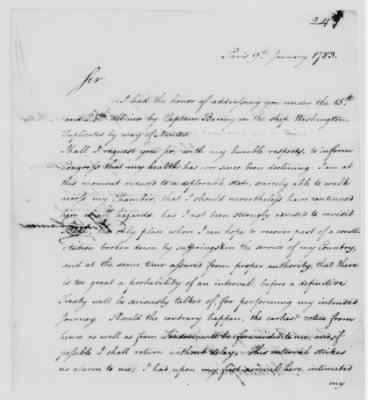 249
Paris 9th January 1783.
Sir
I had the honor of addressing you under the 15th
and 28th Ultimo by Captain Barney in the ship Washington
Duplicates by way of Nantes.
Shall I request you Sir, with my humble respects, to inform
Congress that my health has ever since been declining. I am at
this moment reduced to a deplorable state, scarcely able to walk
across my Chamber, that I should nevertheless have continued
here at all hazards, has I not been strongly advised to revisit
the only place where I can hope to recover part of a consti
tution broken down by sufferings in the service of my Country,
and at the same time assured from proper authority, that there
is too great a probability of an interval, before a definitive
Treaty will be seriously talked of, for performing my intended
Journey. Should the contrary happen, the earliest notice from
hence as well as from London will be forwarded to me, and if
possible I shall return without delay. This interval strikes
no alarm to me; I had, upon my first arrival here, intimated
my